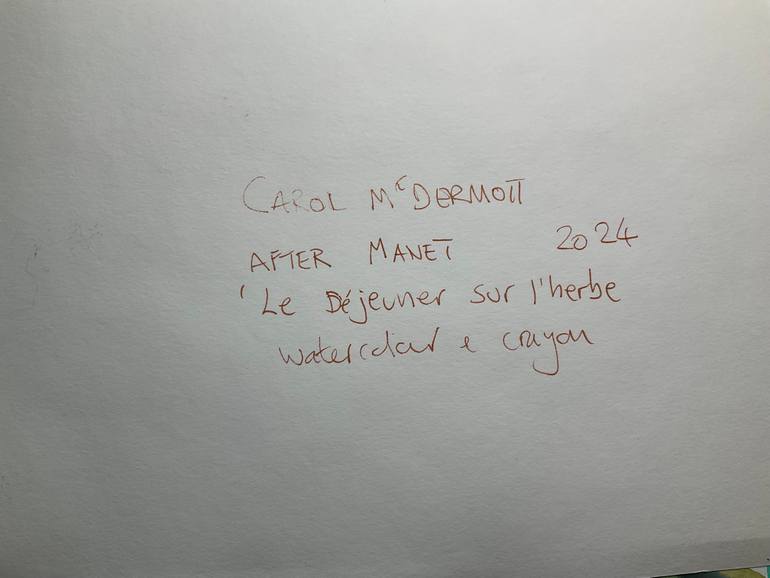 CAROL McDERMOTT
AFTER MANET 2024
'Le Déjeuner sur l'herbe
watercolour & crayon